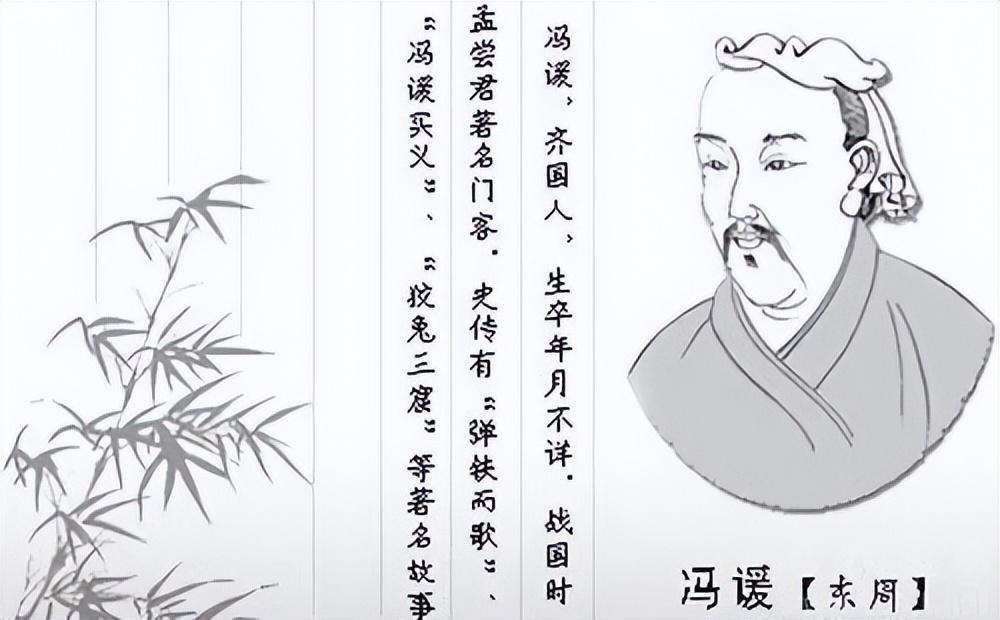 冯谖，齐国人，生卒年月不详．战国时
孟尝君著名门客．史传有“弹铁而歌”、
“冯谖买义”、“狡兔三窟”等著名故事
冯谖【东周】